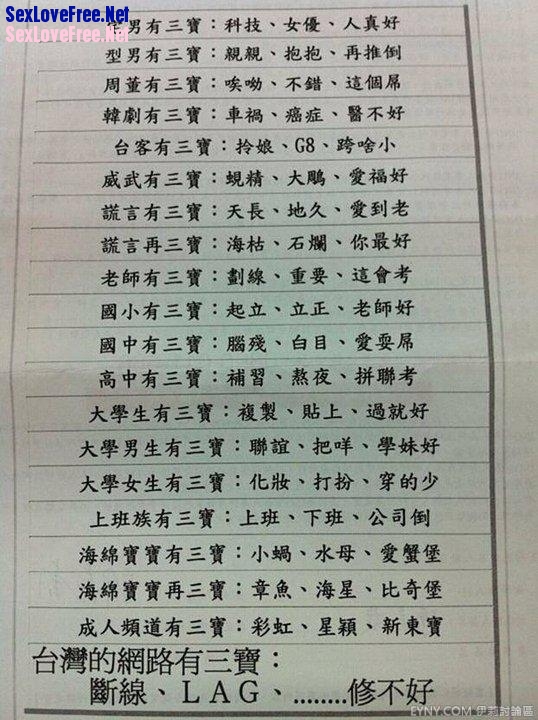 SexLoveFree.Net
SexLoveFree.Net
宅男有三寶：科技、女優、人真好
型男有三寶：親親、抱抱、再推倒
周董有三寶：唉呦、不錯、這個屌
韓劇有三寶：車禍、癌症、醫不好
台客有三寶：拎娘、G8、跨啥小
威武有三寶：蜆精、大鵰、愛福好
謊言有三寶：天長、地久、愛到老
謊言再三寶：海枯、石爛、你最好
老師有三寶：劃線、重要、這會考
國小有三寶：起立、立正、老師好
國中有三寶：腦殘、白目、愛耍屌
高中有三寶：補習、熬夜、拼聯考
大學生有三寶：複製、貼上、過就好
大學男生有三寶：聯誼、把咩、學妹好
大學女生有三寶：化妝、打扮、穿的少
上班族有三寶：上班、下班、公司倒
海綿寶寶有三寶：小蝸、水母、愛蟹堡
海綿寶寶再三寶：章魚、海星、比奇堡
成人頻道有三寶：彩虹、星穎、新東寶
台灣的網路有三寶：
斷線、LAG、........修不好
EYNY.COM 伊莉討論區